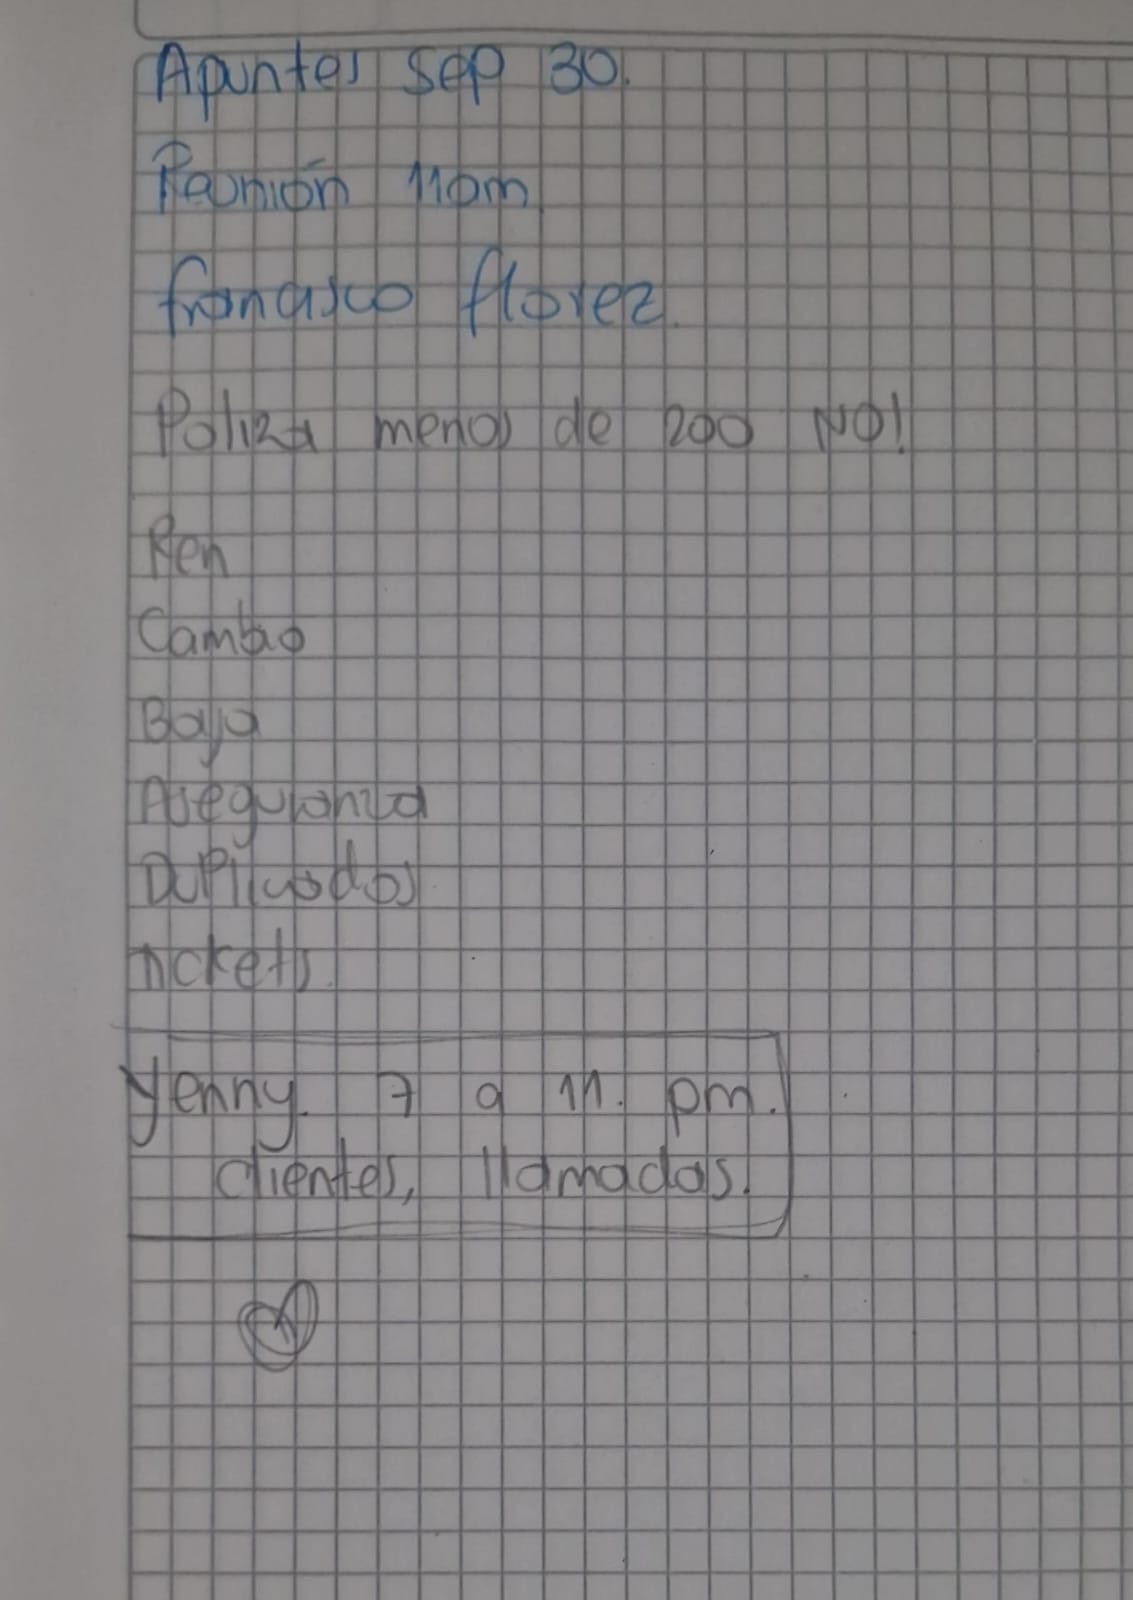 Apuntes sep 30.
Reunión 11am
francisco florez.
Poliza menos de 200 NO!
Ren
Cambio
Baja
Aseguranza
Duplicados
tickets.
Yenny. 7 a 11. pm.
clientes, llamadas.